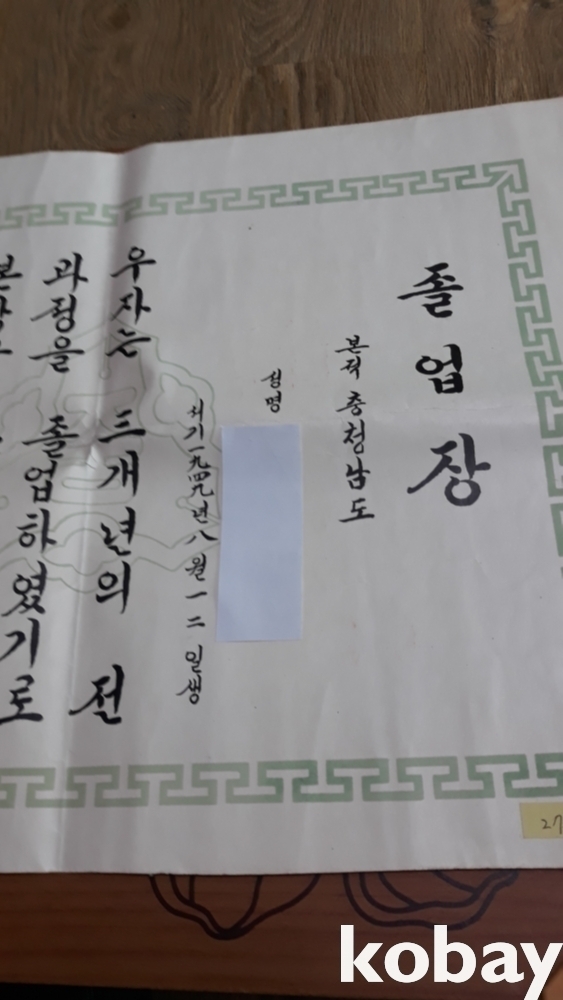 졸업장
본적 충청남도
성명
서기一九四九년八월一二일생
우자는 삼개년의 전
과정을 졸업하였기로
27
kobay